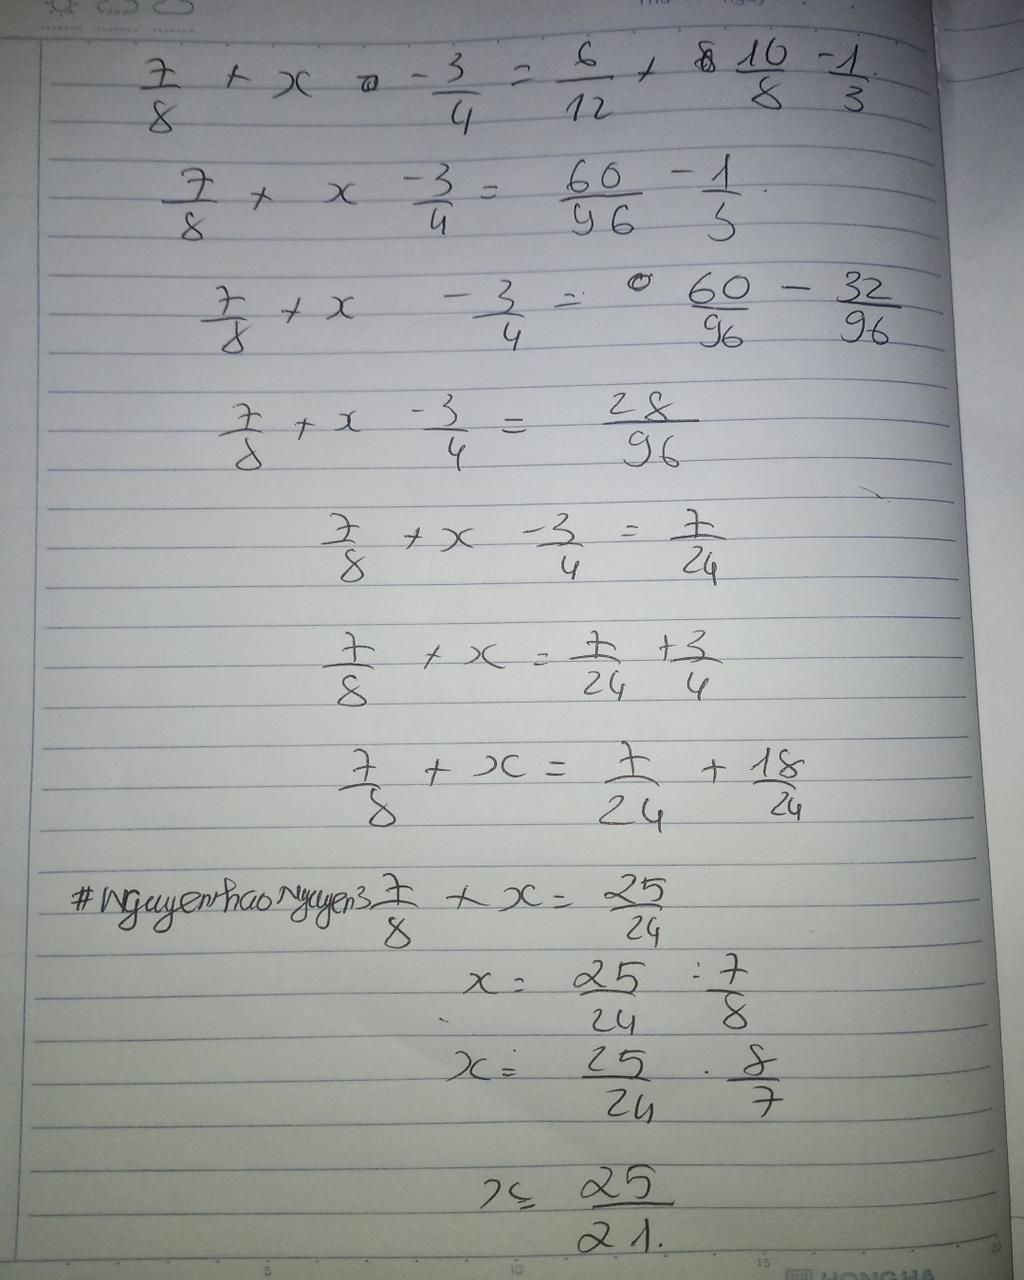 7/8 + x - 3/4 = 6/12 + 10/8 - 1/3
7/8 + x - 3/4 = 60/96 - 1/3
7/8 + x - 3/4 = 60/96 - 32/96
7/8 + x - 3/4 = 28/96
7/8 + x - 3/4 = 7/24
7/8 + x = 7/24 + 3/4
7/8 + x = 7/24 + 18/24
#NguyenthaoNguyen3 7/8 + x = 25/24
x = 25/24 : 7/8
x = 25/24 . 8/7
x = 25/21.
5 10 15 20
HONG HA